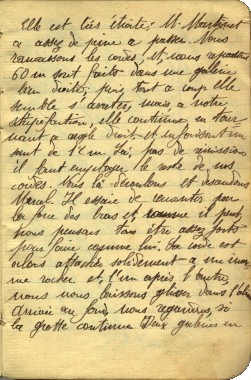 Elle est très étroite; M. Martinent
a assez de peine à passer. Nous
ramassons les cordes, et nous repartons
60 m sont faits dans une galerie
bien droite; puis, tout à coup elle
semble s'arrêter, mais à notre
stupéfaction, elle continue en tour-
nant à angle droit et en faisant un
saut de 12 m. Là, pas de
il faut employer le reste de nos
cordes. Nous la déroulons et descendons
Marcel. Il essaie de remonter par
la force des bras et comme il peut
nous pensons tous être assez forts
pour faire comme lui. La corde est
alors attachée solidement à un énor-
me rocher et l'un après l'autre,
nous nous laissons glisser dans l'
arrivés au fond, nous regardons, si
la grotte continue. Deux galeries en